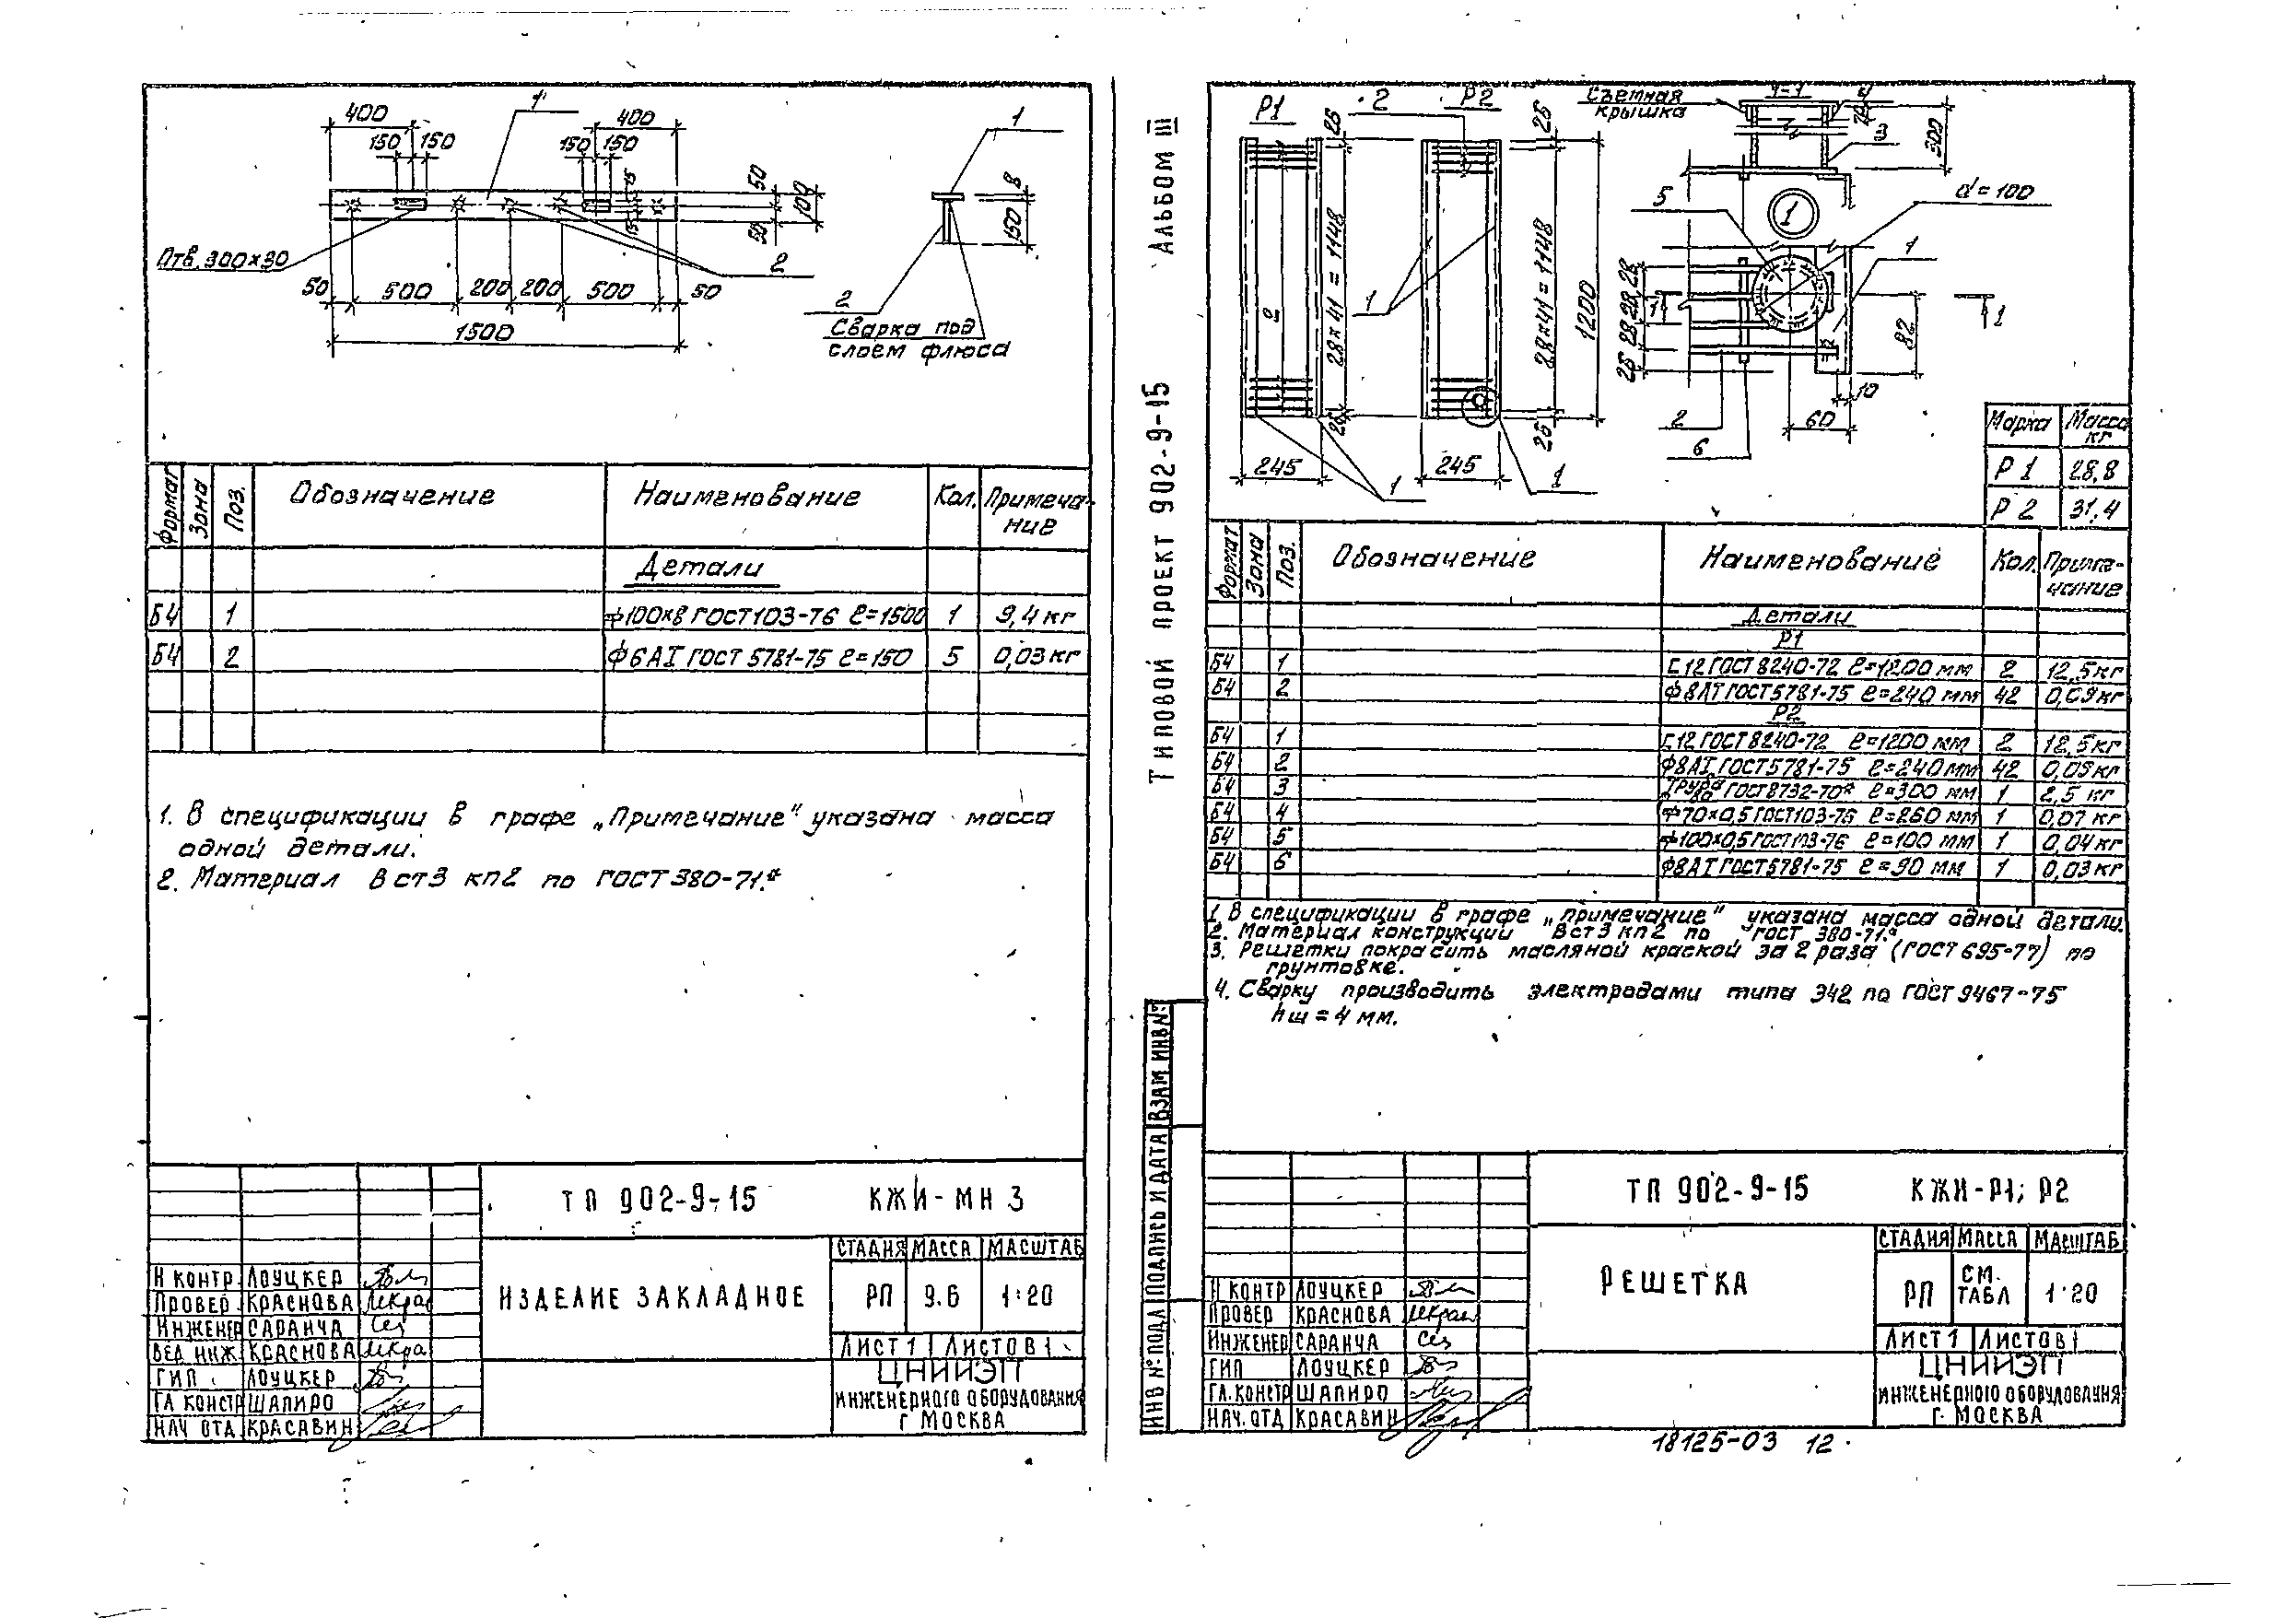 400
1
400
150 150
150 150
15
15
50
100
50
1
8
150
Отв. 300×30
2
50 500 200 200 500 50
1500
2
Сварка под
слоем флюса
Формат Зона Поз. Обозначение Наименование Кол. Примеча-
ние
Детали
Б4 1 100×8 ГОСТ 103-76 ℓ=1500 1 9,4 кг
Б4 2 Ф6АI ГОСТ 5781-75 ℓ=150 5 0,03 кг
1. В спецификации в графе „Примечание" указана масса
одной детали.
2. Материал Вст3 кп2 по ГОСТ 380-71.*
ТП 902-9-15 КЖИ-МН 3
СТАДИЯ МАССА МАСШТАБ
ИЗДЕЛИЕ ЗАКЛАДНОЕ
РП 9.6 1:20
ЛИСТ 1 ЛИСТОВ 1
ЦНИИЭП
ИНЖЕНЕРНОГО ОБОРУДОВАНИЯ
Г МОСКВА
Н КОНТР. ЛОУЦКЕР
ПРОВЕР. КРАСНОВА
ИНЖЕНЕР САРАНЧА
ВЕД ИНЖ КРАСНОВА
ГИП ЛОУЦКЕР
ГЛ КОНСТР ШАПИРО
НАЧ ОТД КРАСАВИН
ТИПОВОЙ ПРОЕКТ 902-9-15 АЛЬБОМ III
Р1
2
Р2
26
28×41=1148
26
245
1
2
1
26
28×41=1148
1200
26
245
1
Съемная
крышка
1-1
4
3
300
5
1
d=100
1
28
28
28
26
1
1
82
10
60
2
6
Марка Масса
кг
Р1 28,8
Р2 31,4
Формат Зона Поз. Обозначение Наименование Кол. Приме-
чание
Детали
Р1
Б4 1 [12 ГОСТ 8240-72 ℓ=1200 мм 2 12,5кг
Б4 2 Ф8АI ГОСТ 5781-75 ℓ=240 мм 42 0,09кг
Р2
Б4 1 [12 ГОСТ 8240-72 ℓ=1200 мм 2 12,5кг
Б4 2 Ф8АI ГОСТ 5781-75 ℓ=240мм 42 0,09кг
Б4 3 Труба ГОСТ 8732-70* ℓ=300 мм 1 2,5 кг
Б4 4 70×0,5 ГОСТ 103-76 ℓ=260 мм 1 0,07 кг
Б4 5 100×0,5 ГОСТ 103-76 ℓ=100 мм 1 0,04кг
Б4 6 Ф8АI ГОСТ 5781-75 ℓ=90 мм 1 0,03кг
1. В спецификации в графе „примечание" указана масса одной детали.
2. Материал конструкции Вст3 кп2 по ГОСТ 380-71.*
3. Решетки покрасить масляной краской за 2 раза (ГОСТ 695-77) по
грунтовке.
4. Сварку производить электродами типа Э42 по ГОСТ 9467-75
hш = 4 мм.
ИНВ № ПОДЛ ПОДПИСЬ И ДАТА ВЗАМ ИНВ №
ТП 902-9-15 КЖИ-Р1; Р2
СТАДИЯ МАССА МАСШТАБ
РЕШЕТКА
РП СМ.
ТАБЛ 1:20
ЛИСТ 1 ЛИСТОВ 1
ЦНИИЭП
ИНЖЕНЕРНОГО ОБОРУДОВАНИЯ
Г. МОСКВА
Н КОНТР ЛОУЦКЕР
ПРОВЕР КРАСНОВА
ИНЖЕНЕР САРАНЧА
ГИП ЛОУЦКЕР
ГЛ. КОНСТР ШАПИРО
НАЧ. ОТД КРАСАВИН
18125-03 12